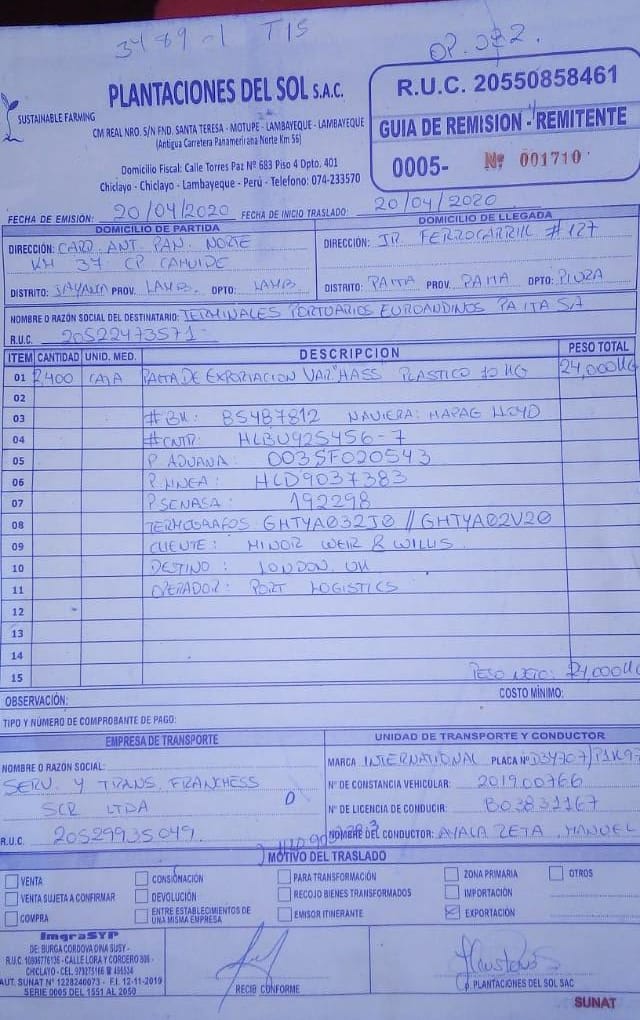 3489-1 TIS
OP. 022.
PLANTACIONES DEL SOL S.A.C.
SUSTAINABLE FARMING
CM REAL NRO. S/N FND. SANTA TERESA - MOTUPE - LAMBAYEQUE - LAMBAYEQUE
(Antigua Carretera Panamericana Norte Km 56)
Domicilio Fiscal: Calle Torres Paz Nº 683 Piso 4 Dpto. 401
Chiclayo - Chiclayo - Lambayeque - Perú - Telefono: 074-233570
R.U.C. 20550858461
GUIA DE REMISION - REMITENTE
0005- Nº 001710
FECHA DE EMISIÓN: 20/04/2020 FECHA DE INICIO TRASLADO: 20/04/2020
DOMICILIO DE PARTIDA
DIRECCIÓN: CARR. ANT. PAN. NORTE
KM 37 CP CAHUIDE
DISTRITO: JAYANCA PROV. LAMB. DPTO: LAMB
DOMICILIO DE LLEGADA
DIRECCIÓN: JR FERROCARRIL #127
DISTRITO: PAITA PROV. PAITA DPTO: PIURA
NOMBRE O RAZÓN SOCIAL DEL DESTINATARIO: TERMINALES PORTUARIOS EUROANDINOS PAITA SA
R.U.C. 20522473571
ITEM CANTIDAD UNID. MED. DESCRIPCION PESO TOTAL
01 2,400 CAJA PALTA DE EXPORTACION VAR. HASS PLASTICO 10 KG 24,000KG
02
03 #BK: 85487812 NAVIERA: HAPAG LLOYD
04 #CNTR: HLBU925456-7
05 P. ADUANA: 0035F020543
06 P. LINEA: HLD9037383
07 P. SENASA: 192298
08 TERMOGRAFOS GHTYA032J0 // GHTYA02V20
09 CLIENTE: MINOR WEIR & WILLIS
10 DESTINO: LONDON, UK
11 OPERADOR: PORT LOGISTICS
12
13
14
15 PESO NETO: 24,000KG
OBSERVACIÓN: COSTO MÍNIMO:
TIPO Y NÚMERO DE COMPROBANTE DE PAGO:
EMPRESA DE TRANSPORTE
NOMBRE O RAZÓN SOCIAL:
SERV. Y TRANS. FRANCHESS
SCR LTDA
R.U.C. 20529935049
UNIDAD DE TRANSPORTE Y CONDUCTOR
MARCA INTERNATIONAL PLACA Nº D3Y707/
Nº DE CONSTANCIA VEHICULAR: 201900766
Nº DE LICENCIA DE CONDUCIR: B03831167
NOMBRE DEL CONDUCTOR: AYALA ZETA, MANUEL
MOTIVO DEL TRASLADO
VENTA
VENTA SUJETA A CONFIRMAR
COMPRA
CONSIGNACIÓN
DEVOLUCIÓN
ENTRE ESTABLECIMIENTOS DE
UNA MISMA EMPRESA
PARA TRANSFORMACIÓN
RECOJO BIENES TRANSFORMADOS
EMISOR ITINERANTE
ZONA PRIMARIA
IMPORTACIÓN
EXPORTACIÓN
OTROS
ImgraSYP
DE: BURGA CORDOVA DINA SUSY -
R.U.C. 10806776136 - CALLE LORA Y CORDERO 806 -
CHICLAYO - CEL. 979275166
AUT. SUNAT Nº 1228240073 - F.I. 12-11-2019
SERIE 0005 DEL 1551 AL 2050
RECIBI CONFORME
p. PLANTACIONES DEL SOL SAC
SUNAT